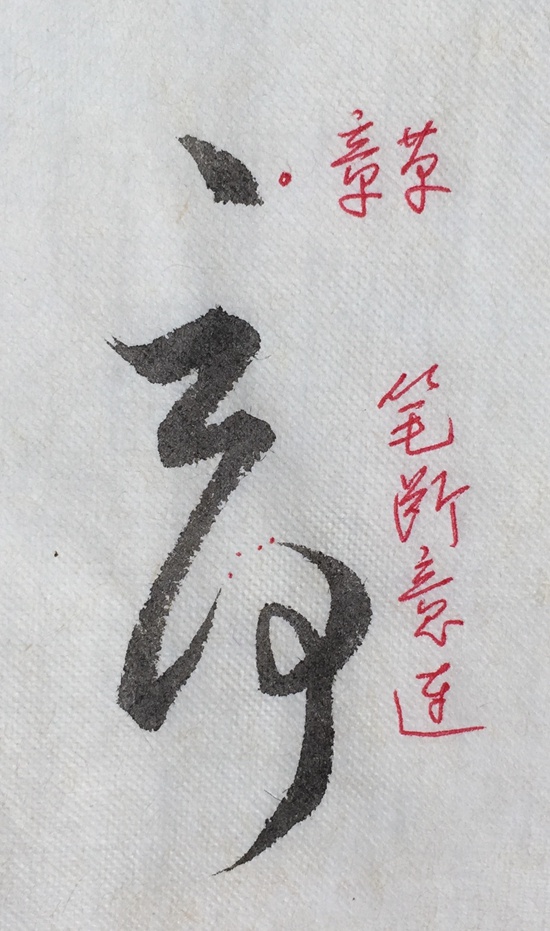 章草
笔断意连